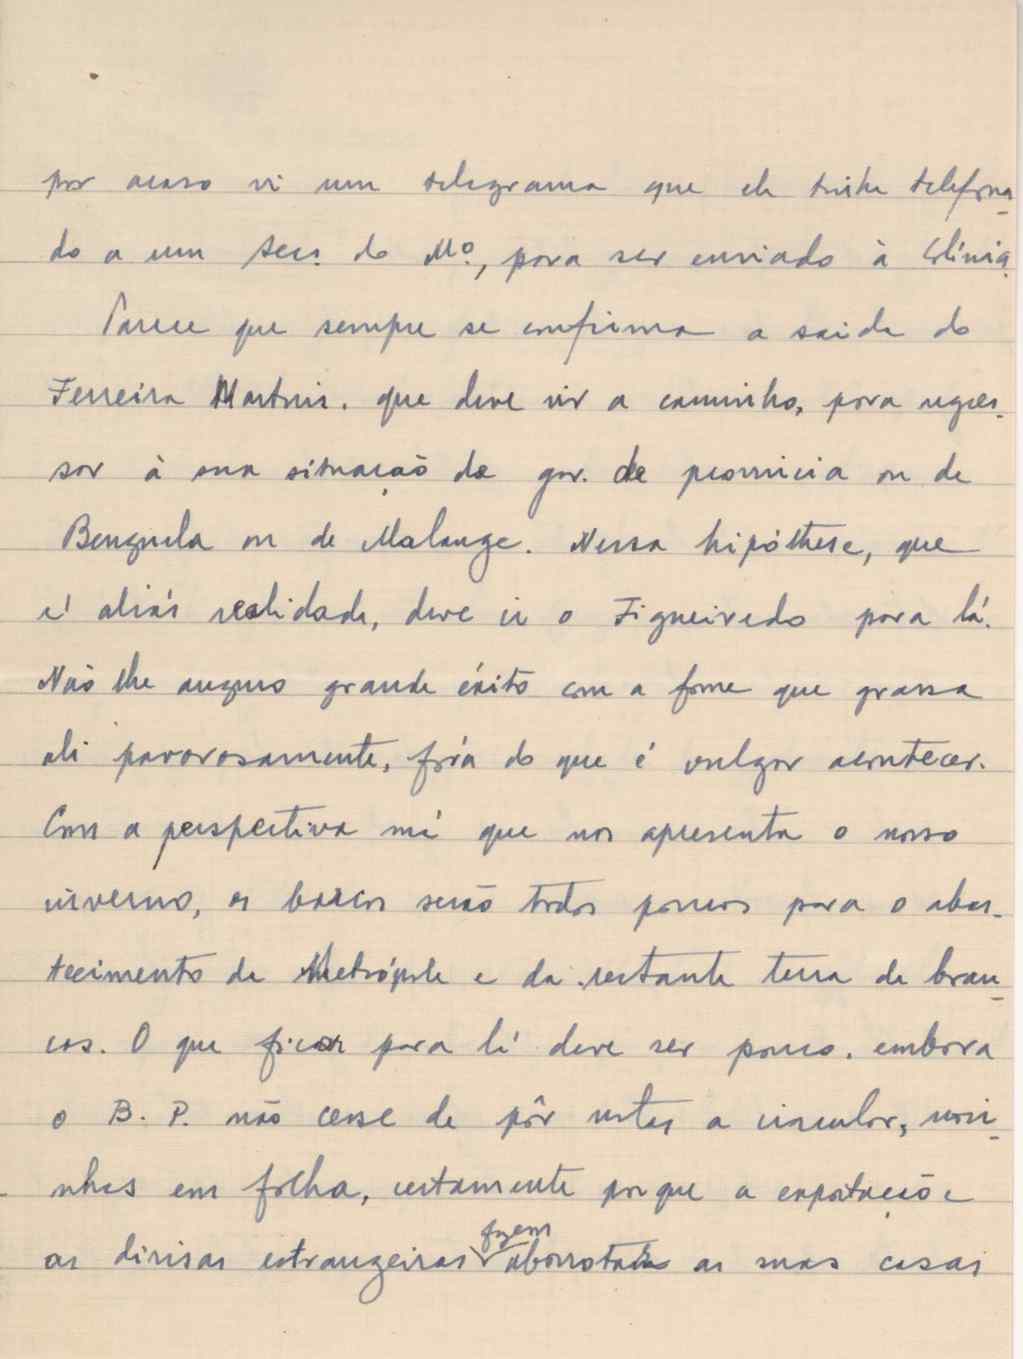 por acaso vi um telegrama que ele tinha telefona-
do a um Secr. do Mº., para ser enviado à Colónia.
Parece que sempre se confirma a saida do
Ferreira Martins. que deve vir a caminho, para regres-
sar à sua situação de gov. de provincia ou de
Benguela ou de Malange. Nessa hipóthese, que
é aliás realidade, deve ir o Figueiredo para lá.
Não lhe auguro grande éxito com a fome que grassa
ali pavorosamente, fóra do que é vulgar acontecer.
Com a perspectiva má que nos apresenta o nosso
inverno, os barcos serão todos poucos para o abas-
tecimento da Metrópole e da restante terra de bran-
cos. O que ficar para lá deve ser pouco. embora
o B. P. não cesse de pôr notas a circular, novi-
nhas em folha, certamente porque a exportação e
as divisas estrangeiras fazem abarrotar as suas casas